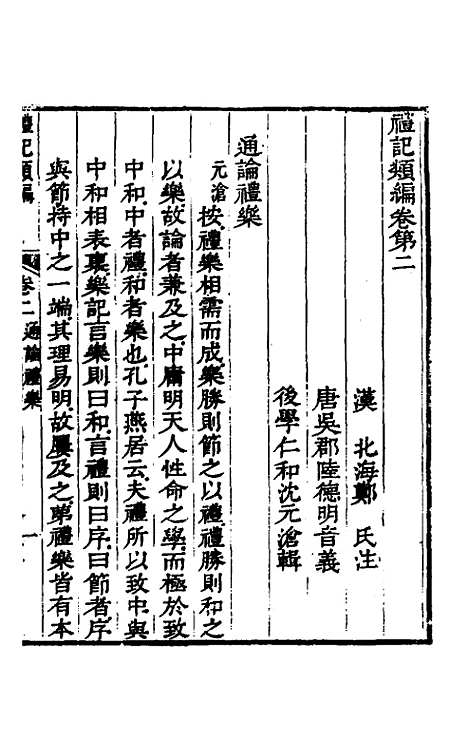 禮記類編卷第二
漢 北海鄭 氏注
唐吳郡陸德明音義
後學仁和沈元滄輯
通論禮樂
元滄按禮樂相需而成樂勝則節之以禮禮勝則和之
以樂故論者兼及之中庸明天人性命之學而極於致
中和中者禮和者樂也孔子燕居云夫禮所以致中與
中和相表裏樂記言樂則曰和言禮則曰序曰節者序
與節持中之一端其理易明故屢及之第禮樂皆有本
禮記類編 卷二通論禮樂 一